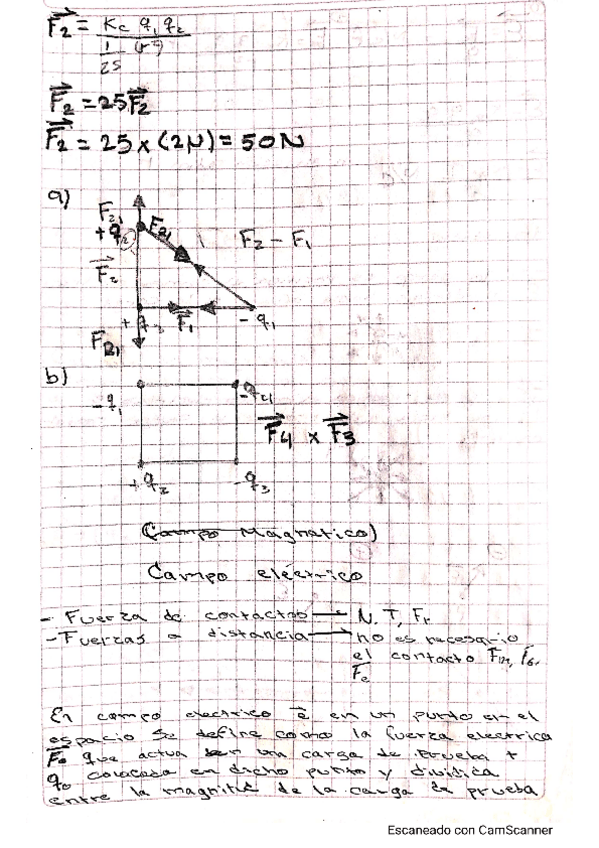 F₂ = Kc q₁ q₂
1/25 (r²)
F₂ = 25F₂
F₂ = 25 x (2N) = 50N
a)
F₂₁
F₂₁
+q₂
F₂ - F₁
F₂
+q₃
F₁
-q₁
F₂₁
b)
-q₁
-q₄
F₄ x F₃
+q₂
-q₃
(Campo Magnatico)
Campo eléctrico
- Fuerza de contactos → N, T, Fr
- Fuerzas a distancia → no es necesario
el contacto Fm, FG,
Fe
En campo electrico e en un punto en el
espacio se define como la fuerza electrica
Fe que actua en una carga de prueba +
q₀ colocada en dicho punto y dividica
entre la magnitud de la carga de prueba
Escaneado con CamScanner